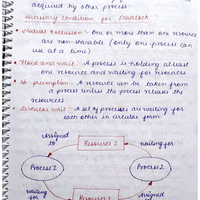 acquired by other process.
Necessary condition for Deadlock
Mutual Exclusion : One or more than one resource
are non-sharable (only one process can
use at a time)
Hold and wait : A process is holding at least
one resource and waiting for resources
No preemption : A resource can be taken from
a process unless the process release the
resources
Circular wait : A set of process are waiting for
each other in circular form
Assigned
to
Resource 1
waiting for
Process 1
Process 2
waiting
for
Resource 2
Assigned